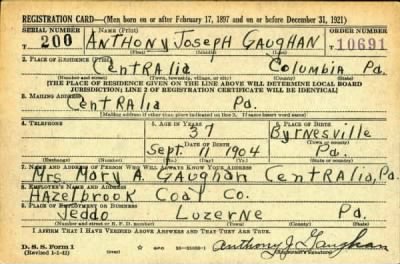 REGISTRATION CARD—(Men born on or after February 17, 1897 and on or before December 31, 1921)
SERIAL NUMBER 1. NAME (Print) ORDER NUMBER
T 200 ANTHONY JOSEPH GAUGHAN T 10691
(First) (Middle) (Last)
2. PLACE OF RESIDENCE (Print)
CENTRALIA COLUMBIA Pa.
(Number and street) (Town, township, village, or city) (County) (State)
[THE PLACE OF RESIDENCE GIVEN ON THE LINE ABOVE WILL DETERMINE LOCAL BOARD
JURISDICTION; LINE 2 OF REGISTRATION CERTIFICATE WILL BE IDENTICAL]
3. MAILING ADDRESS
CENTRALIA Pa.
[Mailing address if other than place indicated on line 2. If same insert word same]
4. TELEPHONE 5. AGE IN YEARS 6. PLACE OF BIRTH
37 BYRNESVILLE
DATE OF BIRTH (Town or county)
Sept. 11 1904 Pa.
(Exchange) (Number) (Mo.) (Day) (Yr.) (State or country)
7. NAME AND ADDRESS OF PERSON WHO WILL ALWAYS KNOW YOUR ADDRESS
Mrs. Mary A. Gaughan CENTRALIA, Pa.
8. EMPLOYER'S NAME AND ADDRESS
HAZelbrook Coal Co.
9. PLACE OF EMPLOYMENT OR BUSINESS
Jeddo Luzerne Pa.
(Number and street or R. F. D. number) (Town) (County) (State)
I AFFIRM THAT I HAVE VERIFIED ABOVE ANSWERS AND THAT THEY ARE TRUE.
D. S. S. Form 1
(Revised 1-1-42) Anthony J. Gaughan
(Registrant's signature)